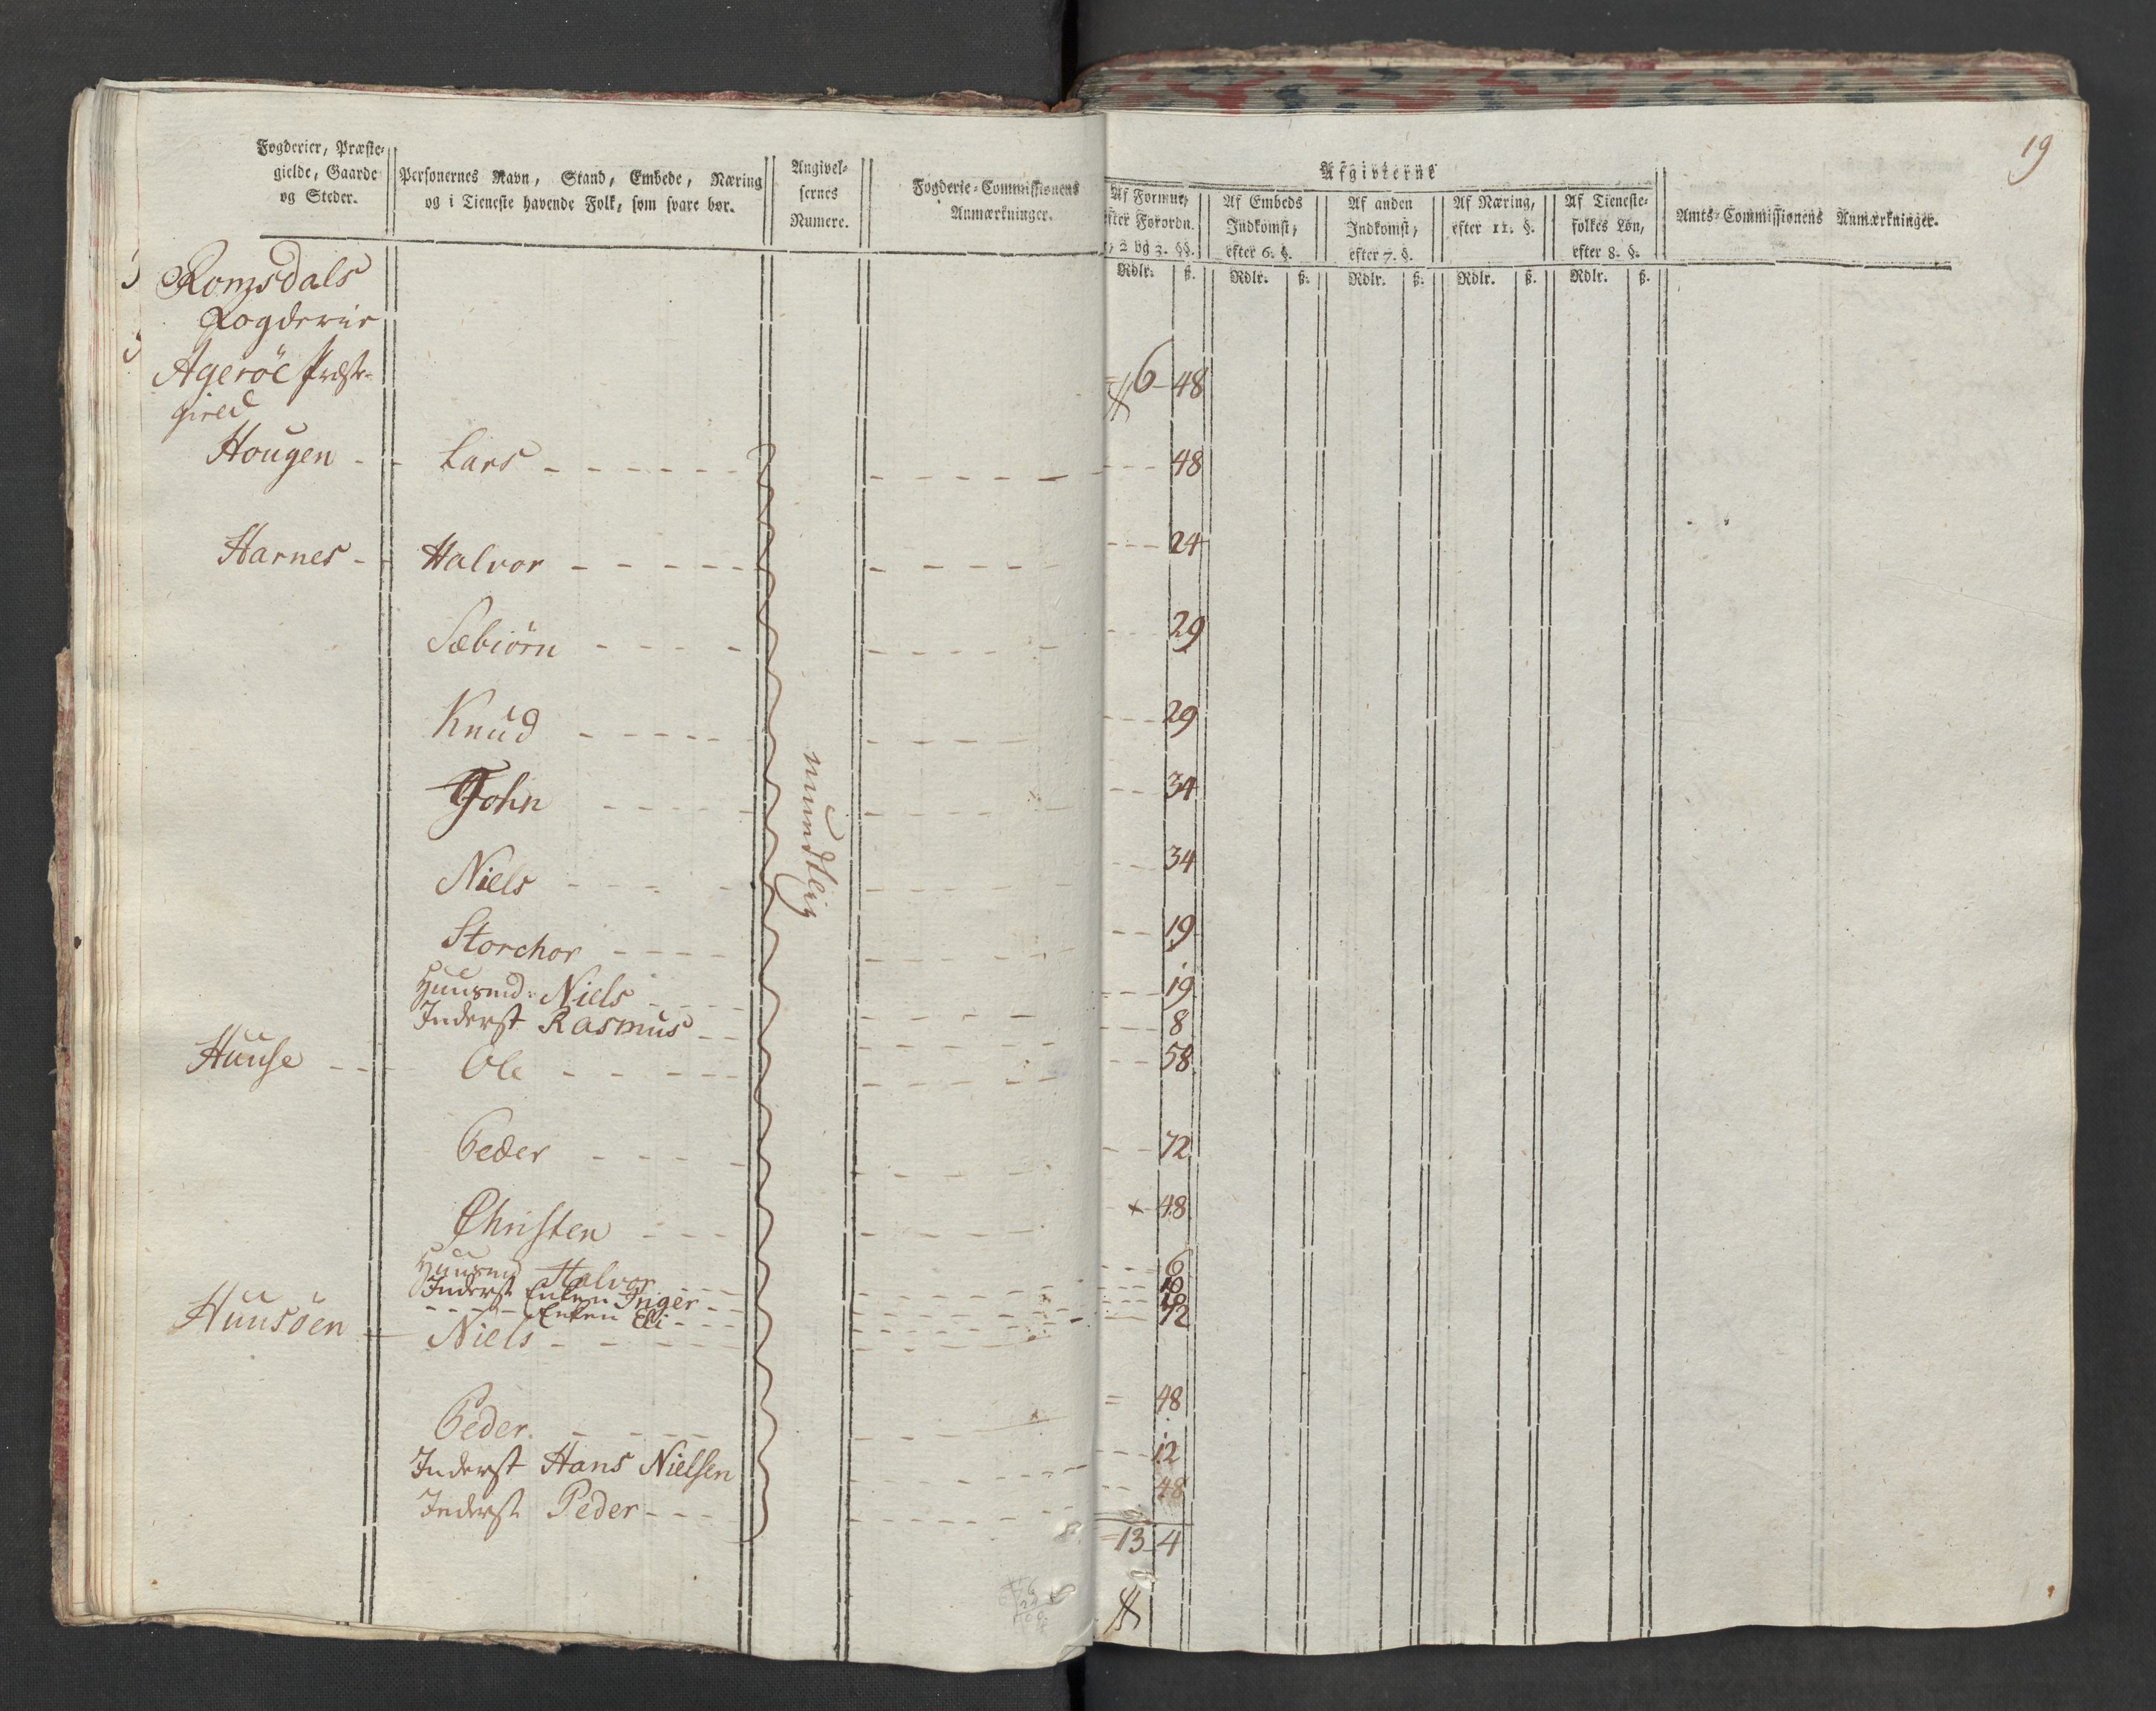 19
Fogderier, Præste-
gielde, Gaarde
og Steder.
Personernes Navn, Stand, Embede, Næring
og i Tieneste havende Folk, som svare bør.
Angivel-
sernes
Numere.
Fogderie-Commissionens
Anmærkninger.
Afgivterne
Af Formue,
efter Forordn.
1, 2 og 3. §§.
Af Embeds
Indkomst,
efter 6. §.
Af anden
Indkomst,
efter 7. §.
Af Næring,
efter 11. §.
Af Tieneste-
folkes Løn,
efter 8. §.
Amts-Commissionens Anmærkninger.
Rdlr. ß. Rdlr. ß. Rdlr. ß. Rdlr. ß. Rdlr. ß.
Romsdals
Fogderie
Ageröe Præste-
gield 6 48
Hougen - Lars - 48
Harnes - Halvor - 24
Sæbiörn - 29
Knud - 29
John - 34
Niels - 34
mundtlig
Storchor - 19
Huusmd: Niels - 19
Inderst Rasmus - 8
Huuse - Ole - 58
Peder - 72
Christen - + 48
Huusmd Halvor - 6
Inderst Enken Inger - 10
- Enken Eli -
Huusöen - Niels - 72
Peder. - = 48
Inderst Hans Nielsen - 12
Inderst Peder - 48
= 13 4